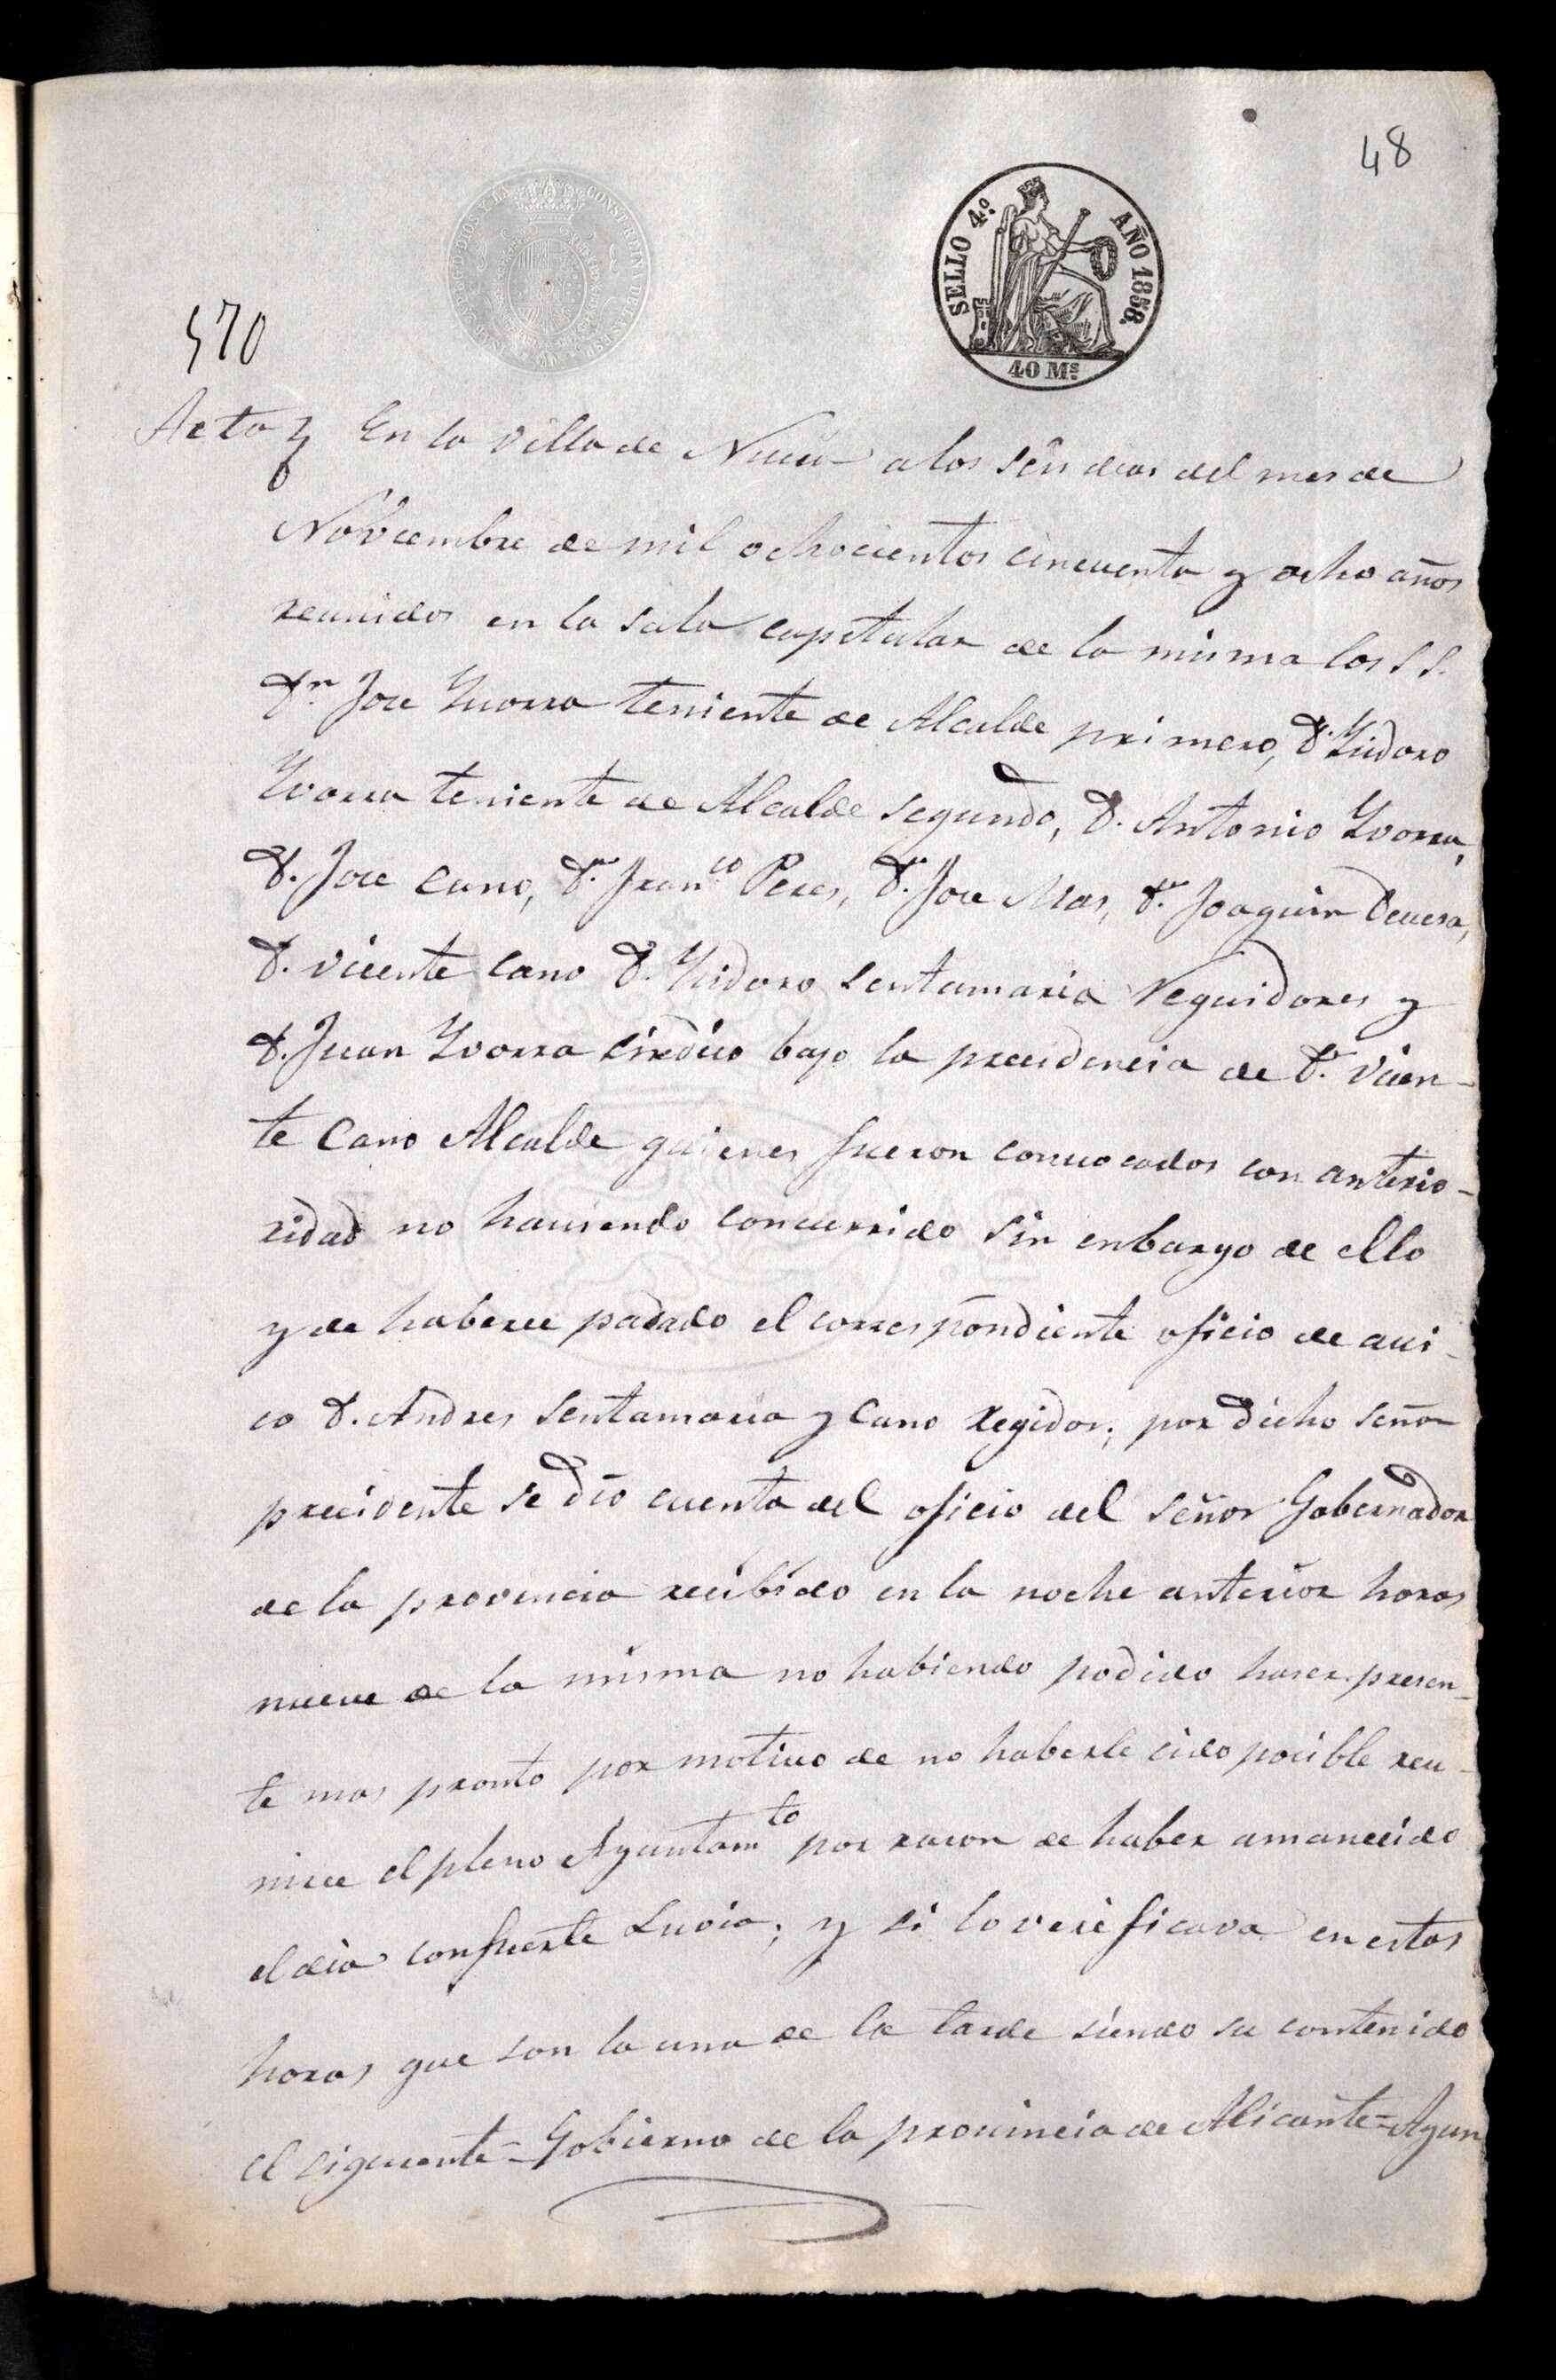 48
SELLO 4º AÑO 1858.
40 Ms
570
Acta En la villa de Nucia a los seis dias del mes de
Noviembre de mil ochocientos cincuenta y ocho años
reunidos en la sala capitular de la misma los SS.
Dn. Jose Yvorra teniente de Alcalde primero, D. Ysidoro
Yvorra teniente de Alcalde segundo, D. Antonio Yvorra,
D. Jose Cano, Dn. Franco Peres, Dn. Jose Mas, Dn. Joaquin Devesa,
D. Vicente Cano D. Ysidoro Sentamaria Reguidores y
D. Juan Yvorra Cindico bajo la precidencia de Dn. Vicen-
te Cano Alcalde quienes fueron convocados con anterio-
ridad no haviendo concurrido sin enbargo de ello
y de haberce pasado el correspondiente oficio de avi-
co D. Andres Sentamaria y Cano Regidor; por dicho señor
precidente se dio cuenta del oficio del señor Gobernador
de la provincia recibido en la noche anterior horas
nueve de la misma no habiendo podido haser presen-
te mas pronto por motivo de no haberle cido pocible reu-
nirce el pleno Ayuntamto por racon de haber amanecido
el dia con fuerte Luvia; y si lo verificava en estas
horas que son la una de la tarde siendo su contenido
el siguente = Gobierno de la provincia de Alicante = Ayun